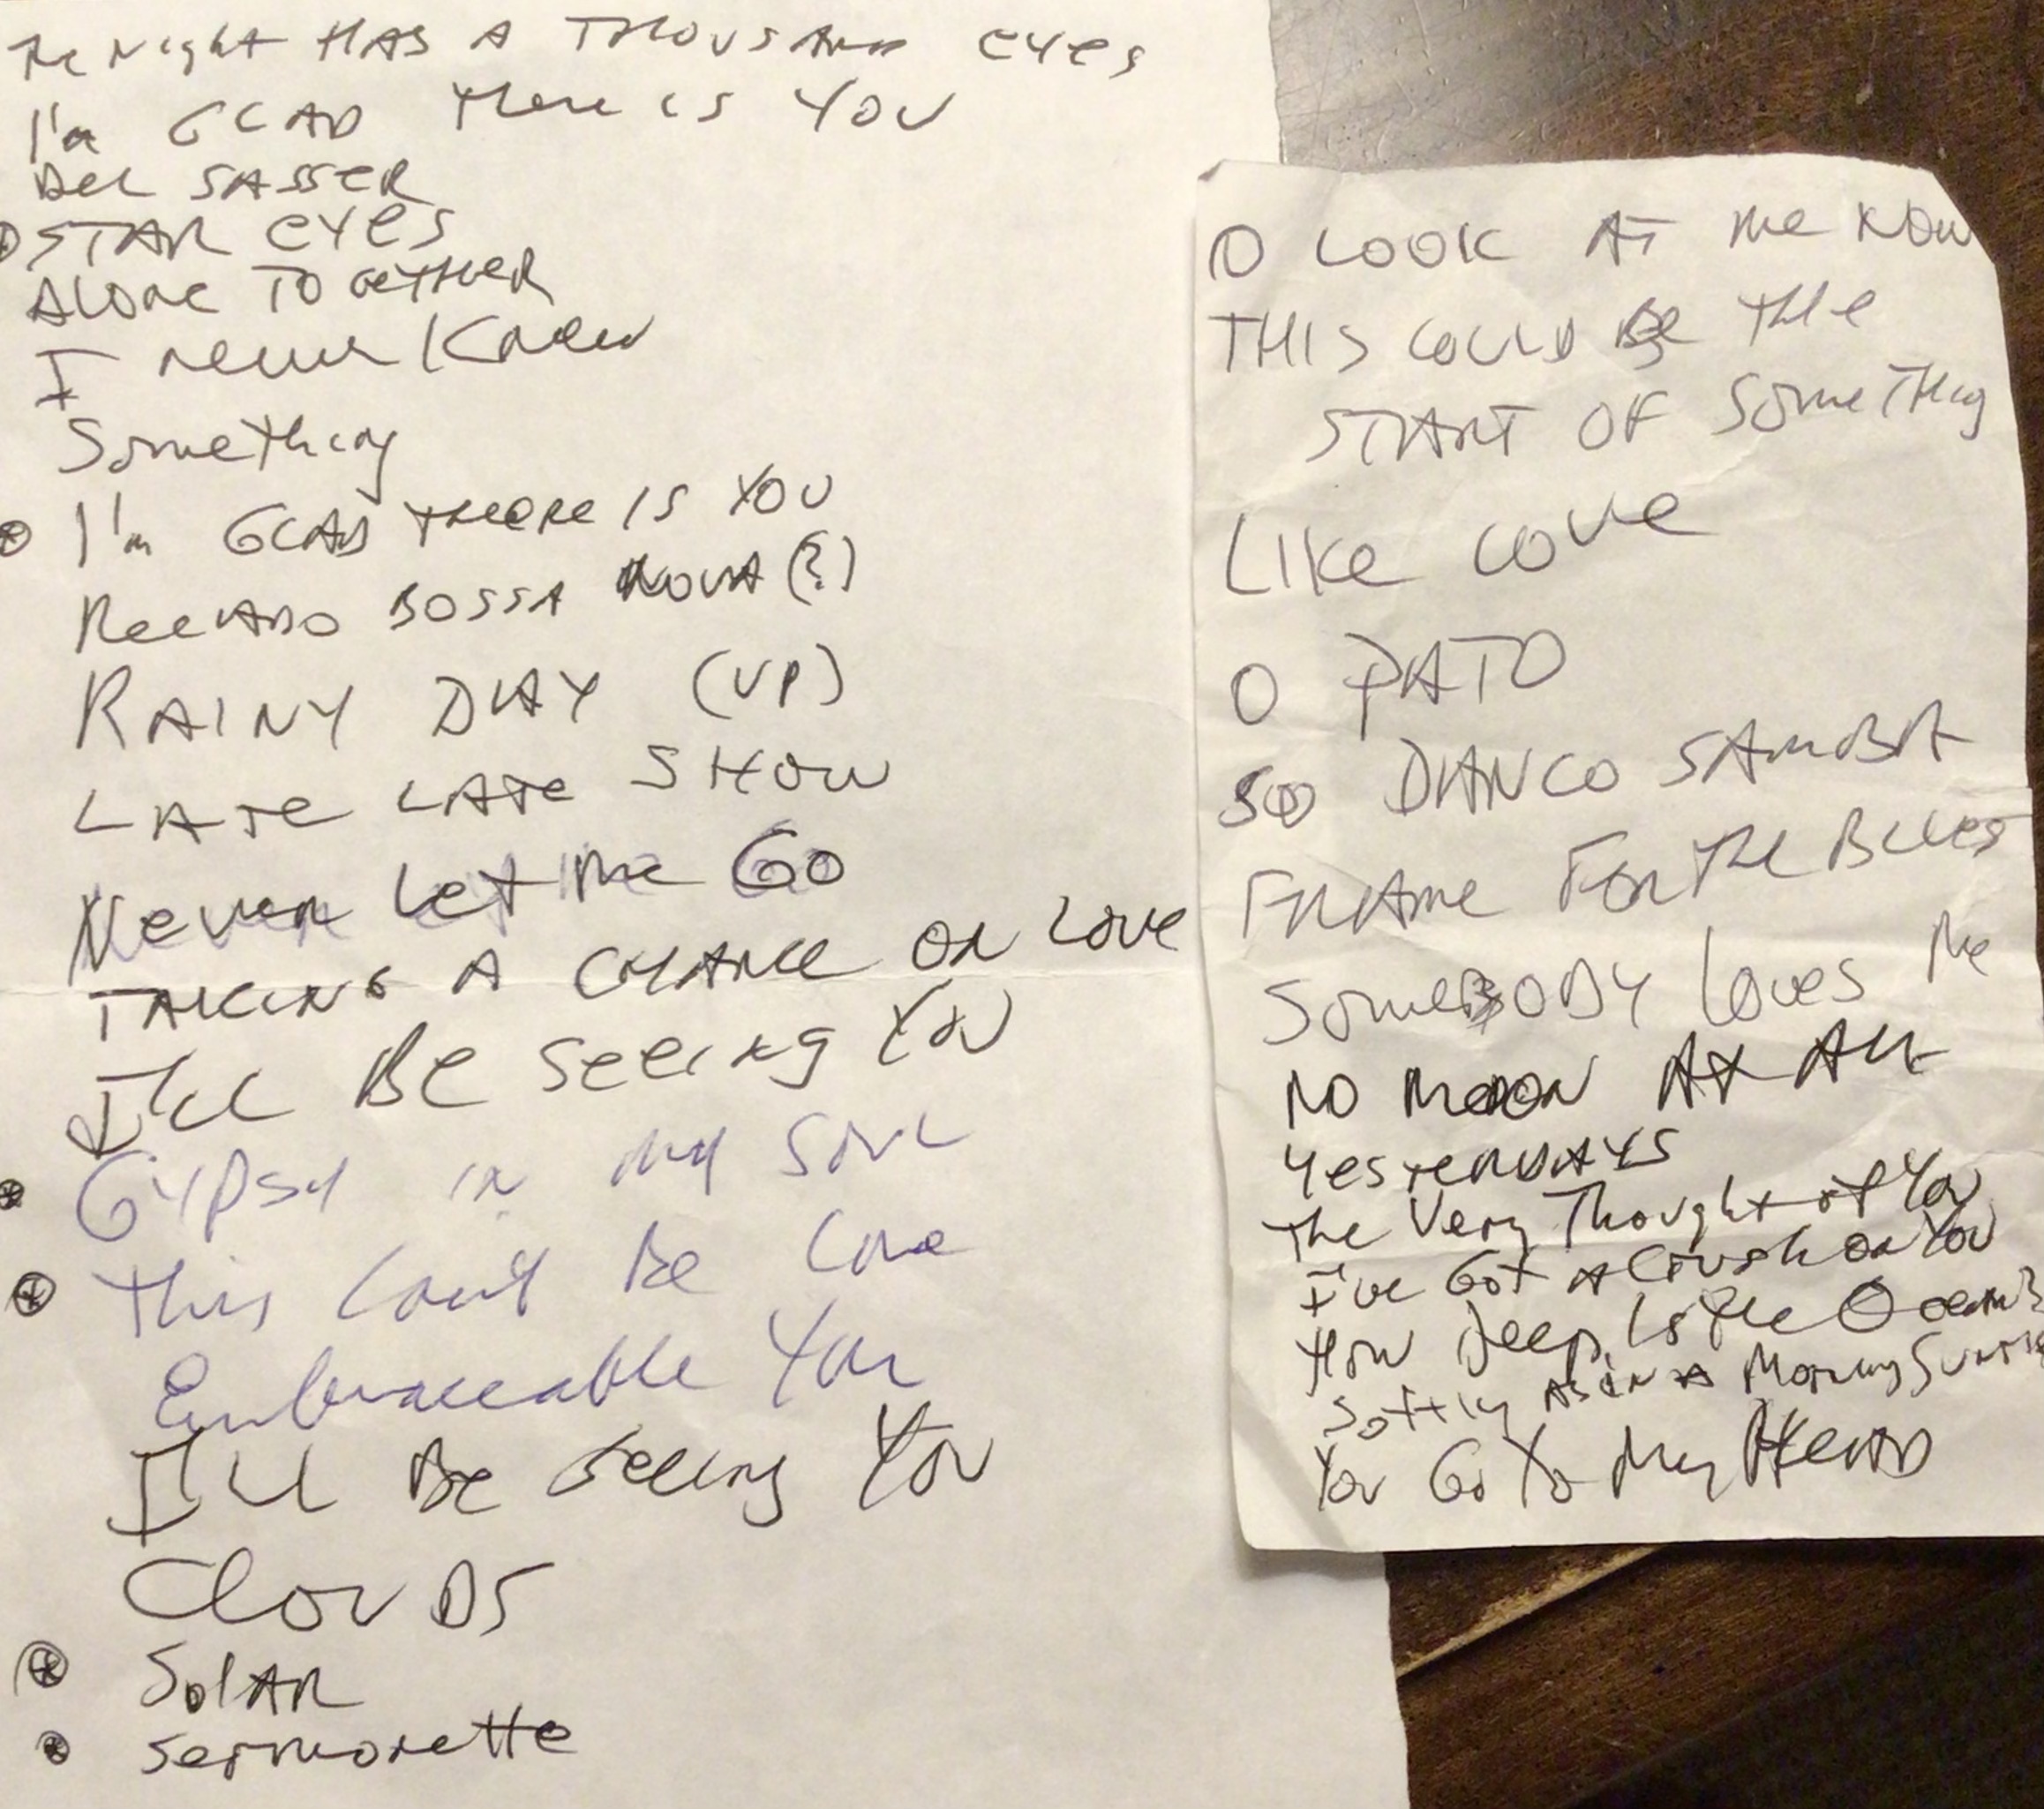 The Night HAS A THOUSAND eyes
I'm GLAD there is YOU
Del SASSER
STAR eyes
ALONE TOGETHER
I never Knew
Something
I'm GLAD THERE IS YOU
RecuADO BOSSA NOVA (?)
RAINY DAY (UP)
LATE LATE SHOW
Never Let me Go
TAKING A CHANCE ON LOVE
I'll Be Seeing You
Gypsy in my Soul
This Can't Be Love
Embraceable You
I'll Be Seeing You
ClouDS
SolAR
Sermonette
O LOOK AT me NOW
THIS COULD Be the
START OF SomeTHing
LIKE LOVE
O PATO
SO DANCO SAMBA
FRAme FOR The Blues
SomeBODY Loves Me
NO MOON At All
YesterdAYS
The Very Thought of You
I've Got A Crush on You
How Deep Is the Ocean?
Softly As In A Morning
You Go To My HeAD